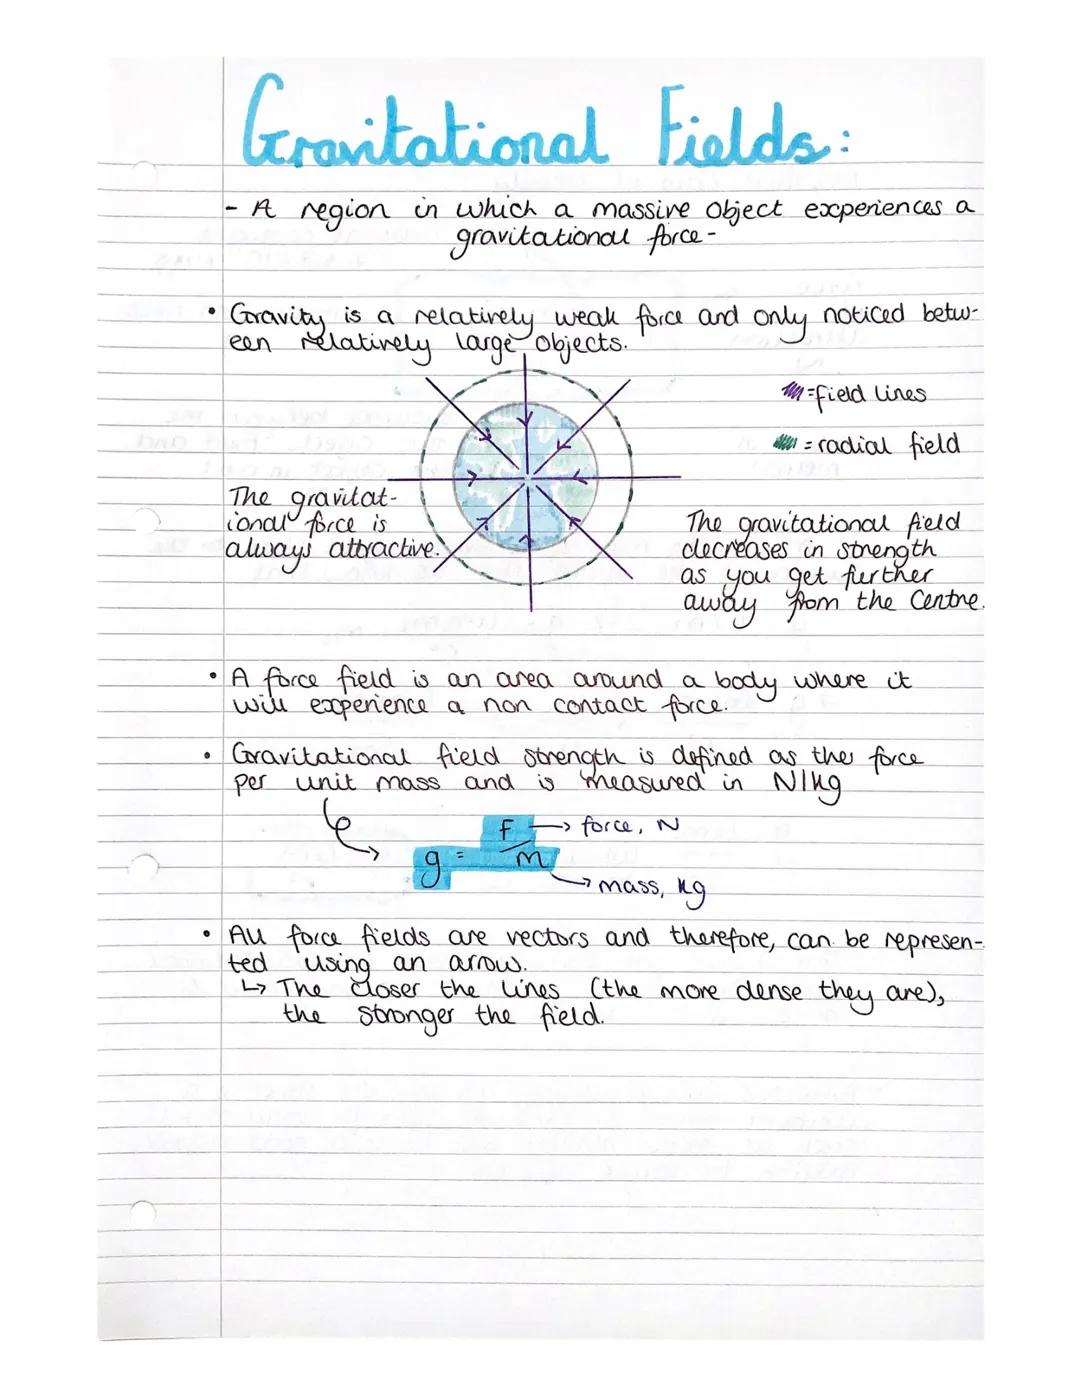 Gravitational Fields:
- A region in which a massive object experiences a
gravitational force -
• Gravity is a relatively weak force and only noticed betw-
een relatively large objects.
= field lines
= radial field
The gravitat-
ional force is
always attractive.
The gravitational field
decreases in strength
as you get further
away from the centre.
• A force field is an area around a body where it
will experience a non contact force.
• Gravitational field strength is defined as the force
per unit mass and is measured in N/kg
g = F/m
→ force, N
→ mass, kg
• All force fields are vectors and therefore, can be represen-
ted using an arrow.
↳ The closer the lines (the more dense they are),
the stronger the field.